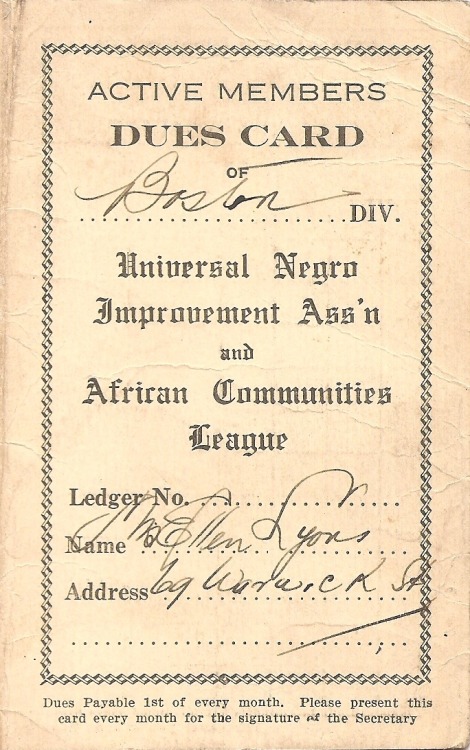 ACTIVE MEMBERS
DUES CARD
OF
Boston DIV.
Universal Negro
Improvement Ass'n
and
African Communities
League
Ledger No.
Name Ellen Lyons
Address 69 Warwick St
Dues Payable 1st of every month. Please present this
card every month for the signature of the Secretary